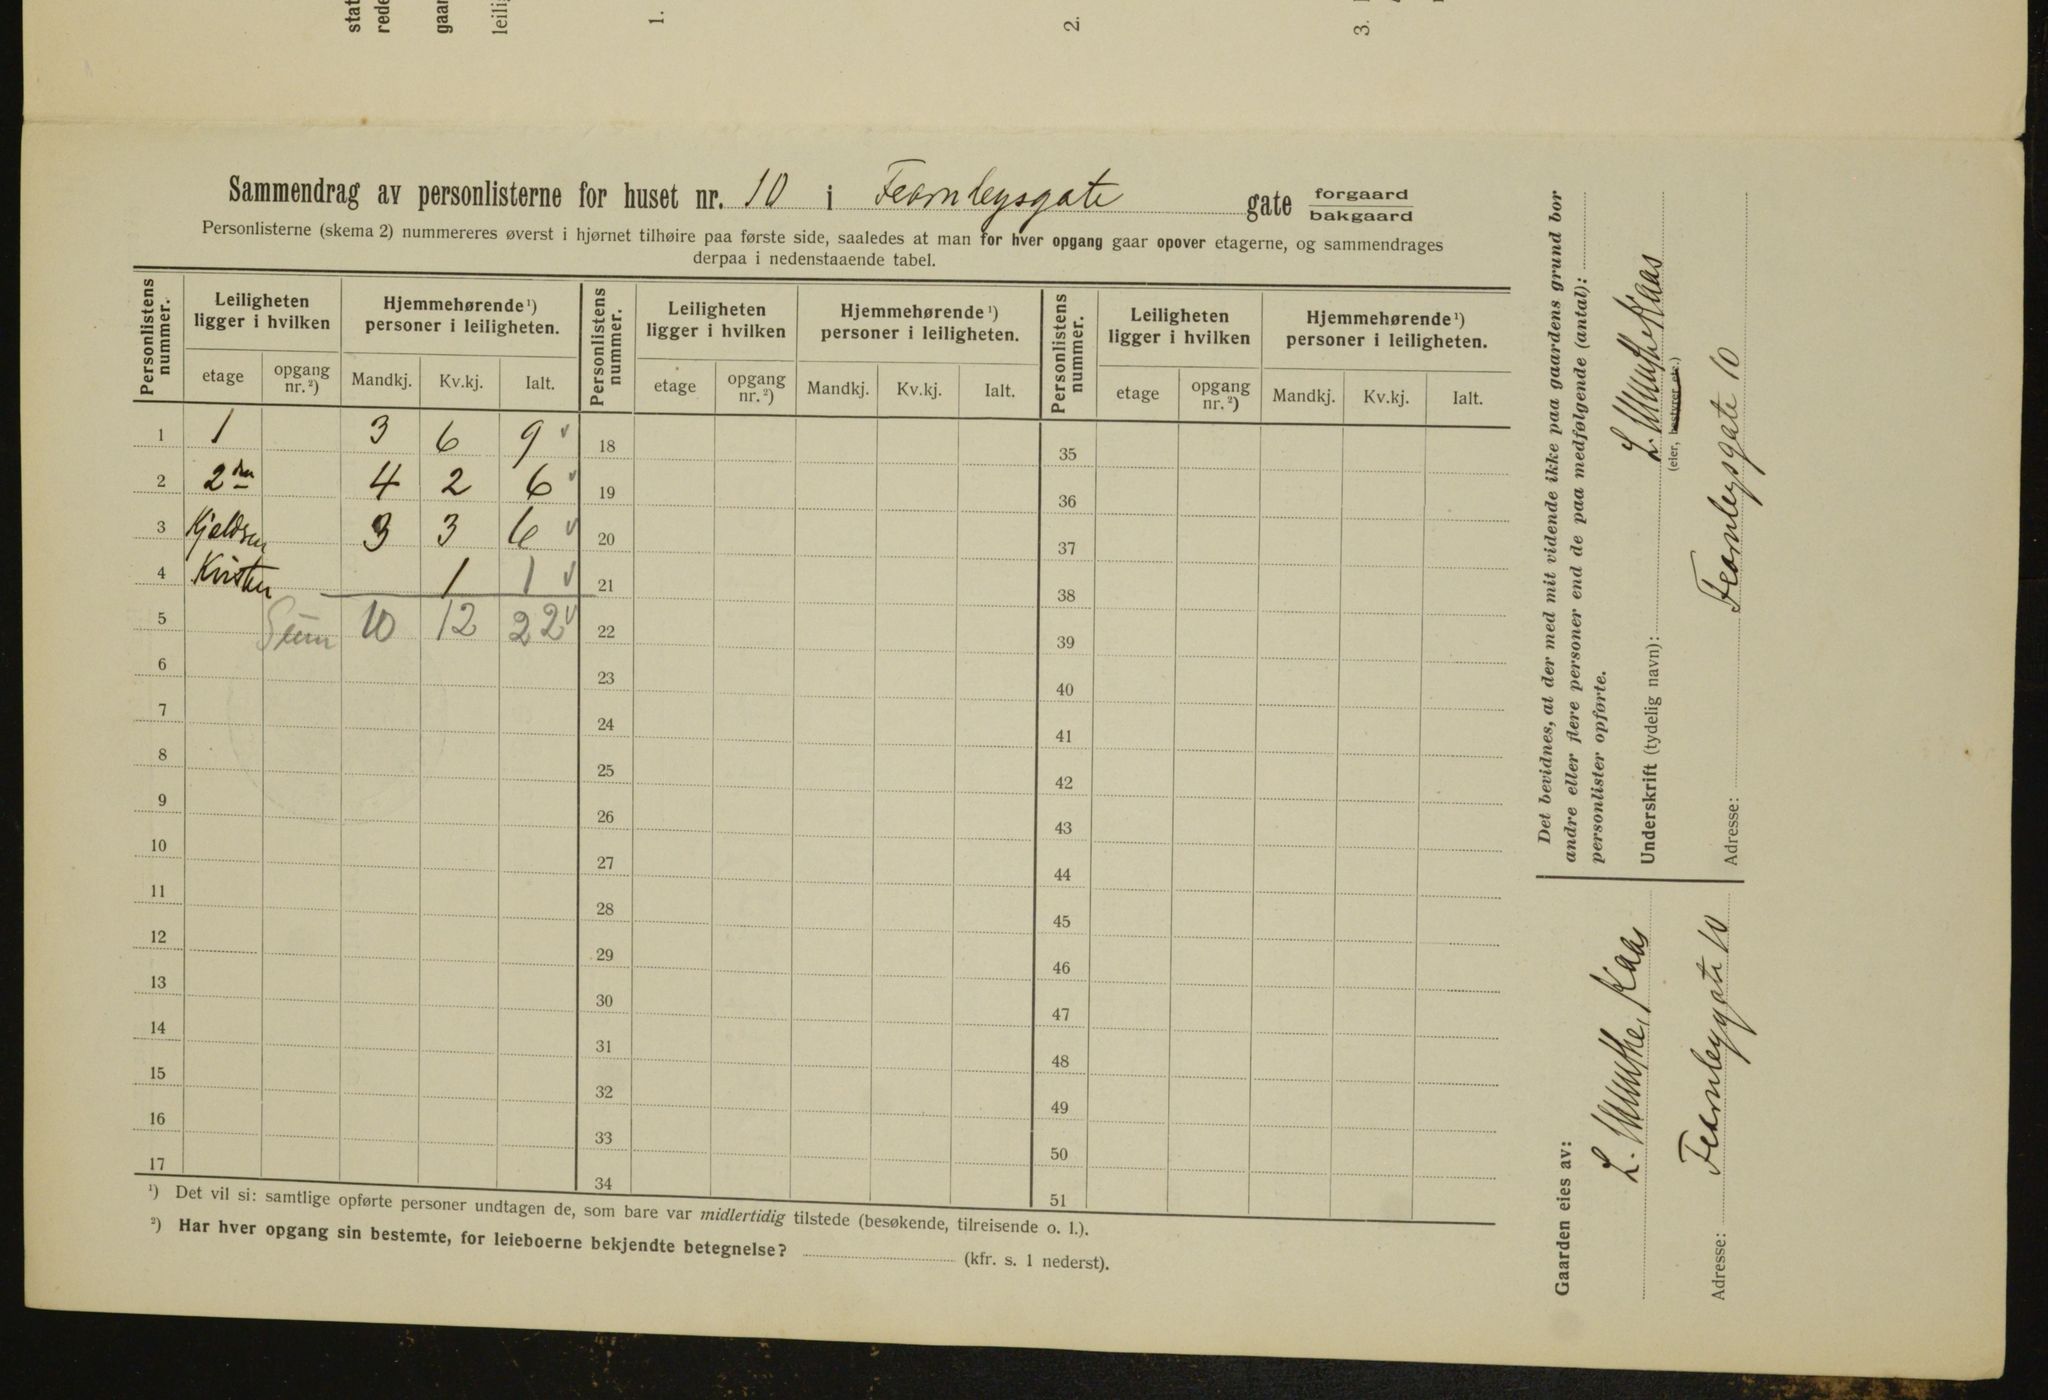 stat
rede
gaar
leili
1.
2.
3.
Sammendrag av personlisterne for huset nr. 10 i Fearnleysgate gate forgaard
bakgaard
Personlisterne (skema 2) nummereres øverst i hjørnet tilhøire paa første side, saaledes at man for hver opgang gaar opover etagerne, og sammendrages
derpaa i nedenstaaende tabel.
Personlistens nummer. Leiligheten ligger i hvilken Hjemmehørende ¹) personer i leiligheten. Personlistens nummer. Leiligheten ligger i hvilken Hjemmehørende ¹) personer i leiligheten. Personlistens nummer. Leiligheten ligger i hvilken Hjemmehørende ¹) personer i leiligheten.
etage opgang nr. ²) Mandkj. Kv.kj. Ialt. etage opgang nr. ²) Mandkj. Kv.kj. Ialt. etage opgang nr. ²) Mandkj. Kv.kj. Ialt.
1 1 3 6 9 18 35
2 2den 4 2 6 19 36
3 Kjeldsen 3 3 6 20 37
4 Kvisten 1 1 21 38
5 Sum 10 12 22 22 39
6 23 40
7 24 41
8 25 42
9 26 43
10 27 44
11 28 45
12 29 46
13 30 47
14 31 48
15 32 49
16 33 50
17 34 51
¹) Det vil si: samtlige opførte personer undtagen de, som bare var midlertidig tilstede (besøkende, tilreisende o. l.).
²) Har hver opgang sin bestemte, for leieboerne bekjendte betegnelse? (kfr. s. 1 nederst).
Det bevidnes, at der med mit vidende ikke paa gaardens grund bor
andre eller flere personer end de paa medfølgende (antal):
personlister opførte.
Underskrift (tydelig navn): L. Munthe Kaas
(eier, bestyrer etc.)
Adresse: Fearnleysgate 10
Gaarden eies av:
L. Munthe Kaas
Adresse: Fearnleygate 10